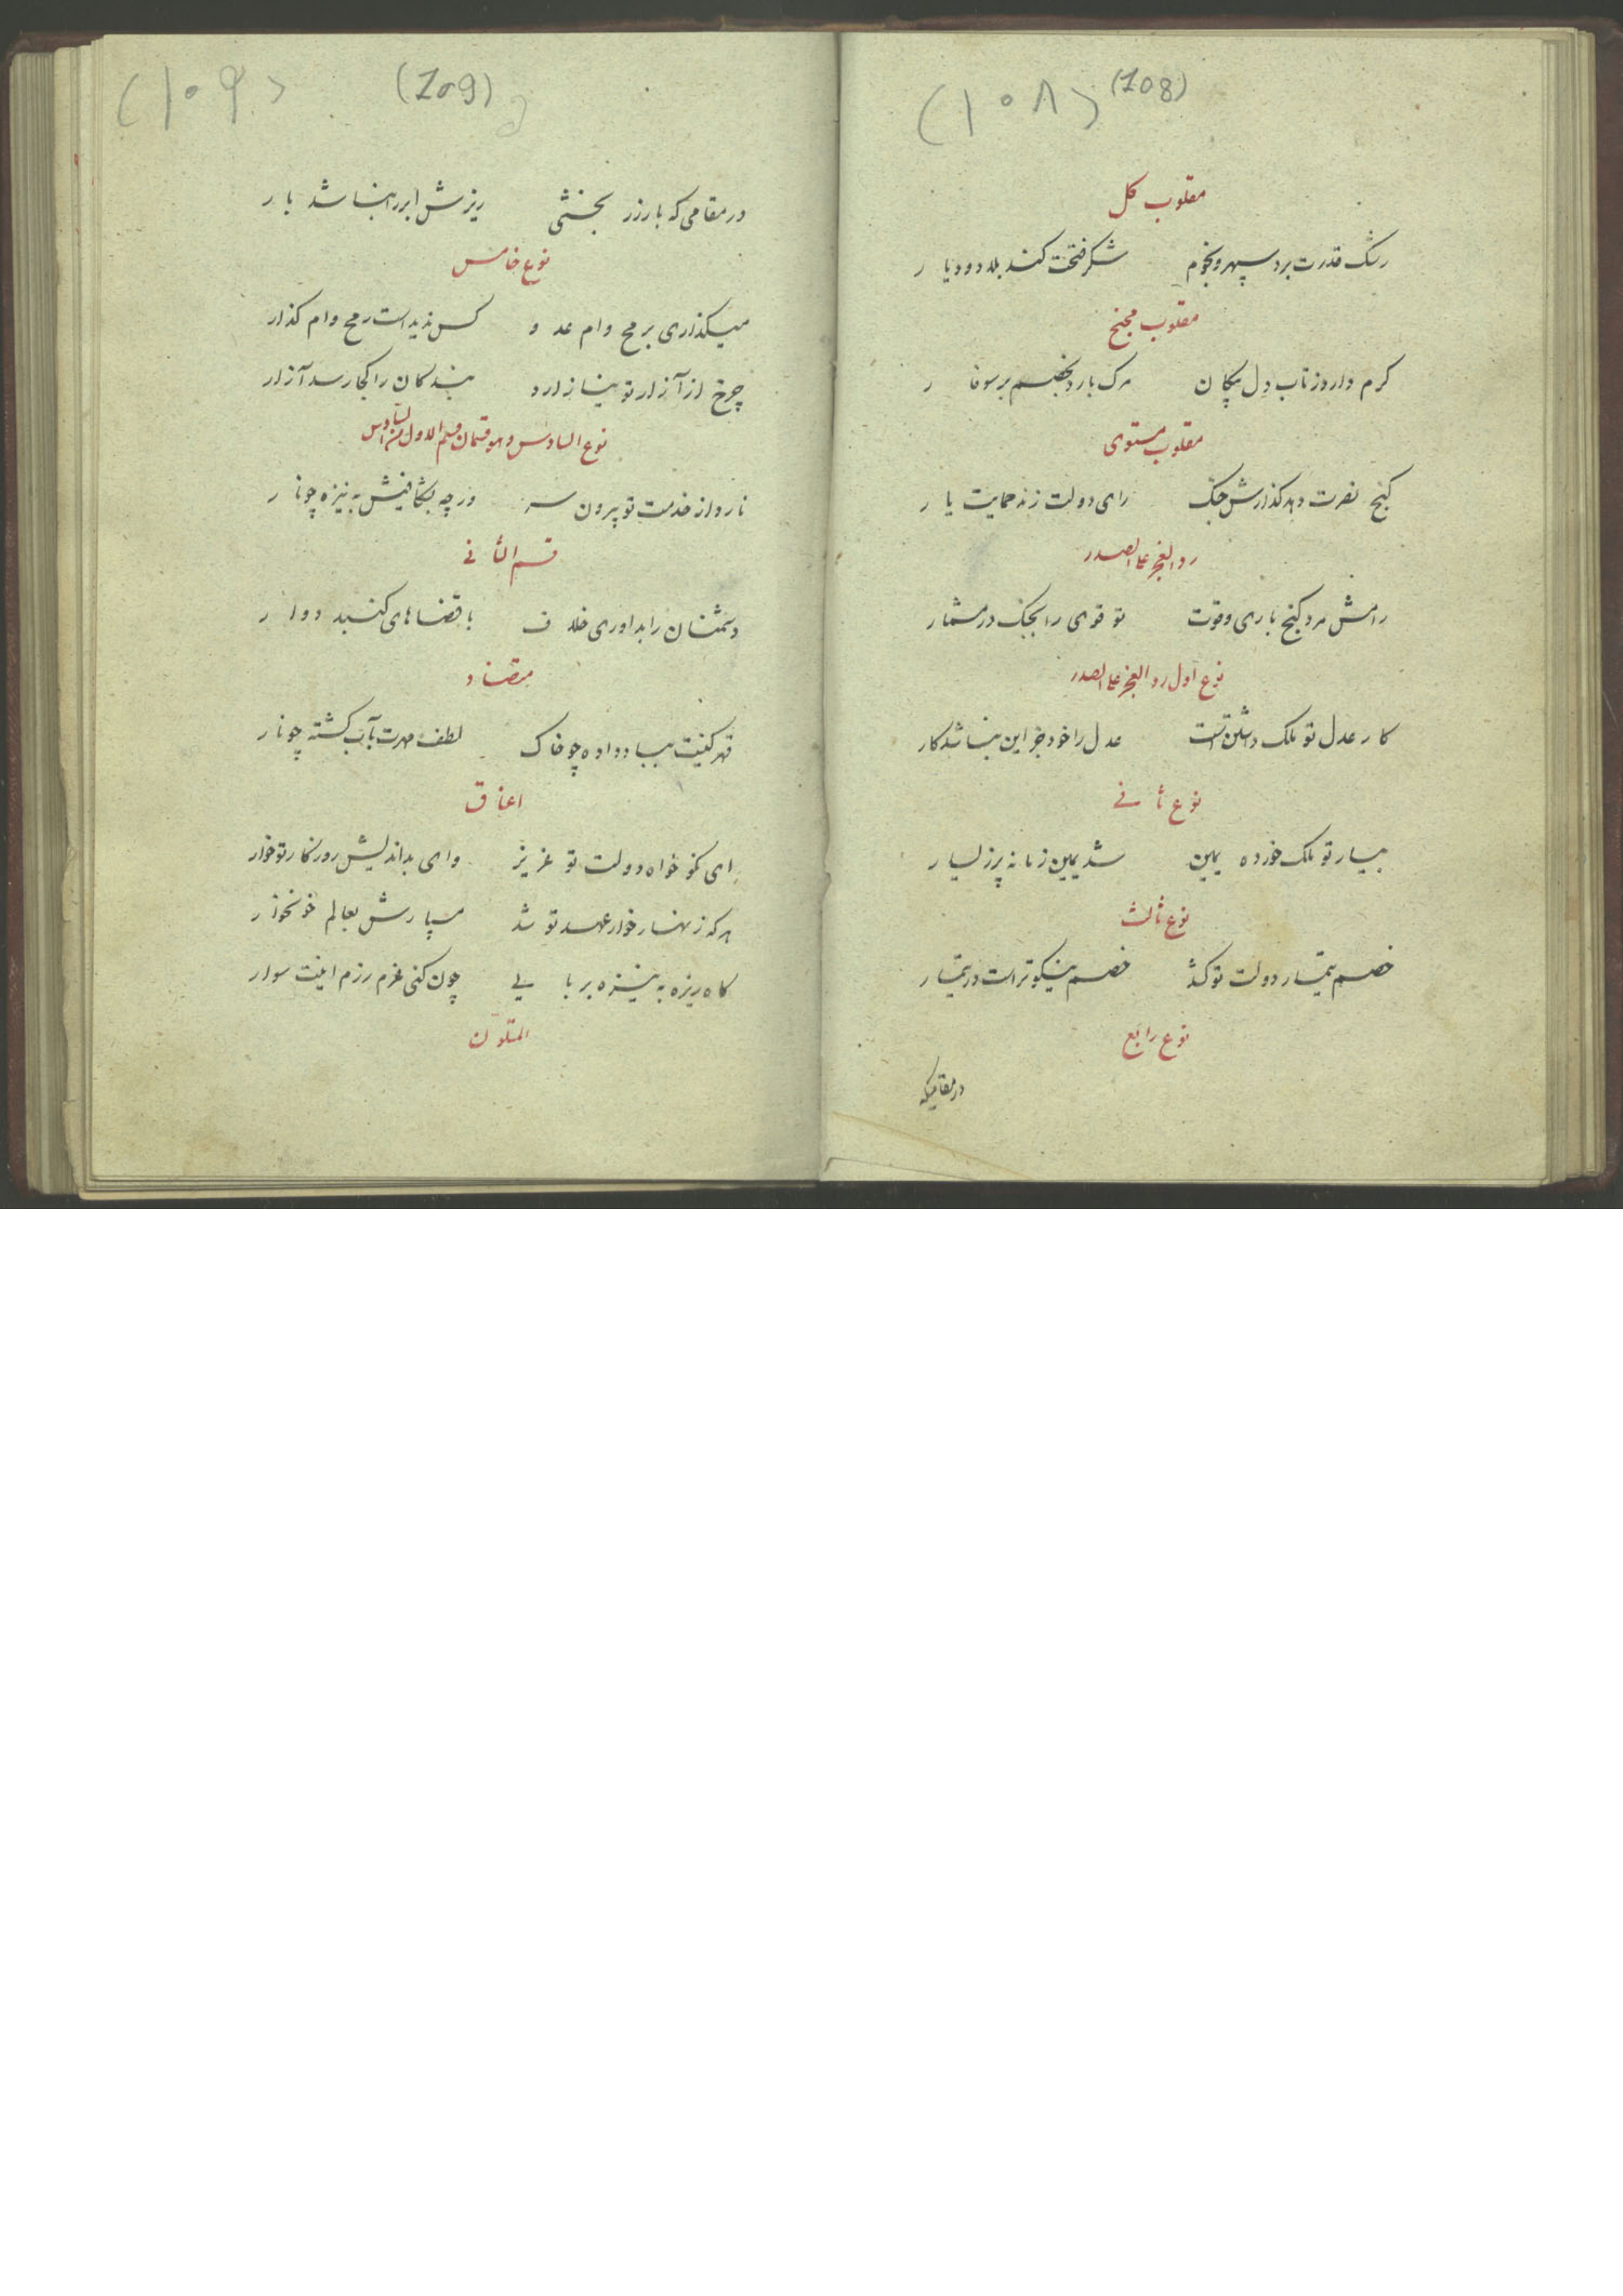 (۱۰۸) (108)
مقلوب کل
رشک قدرت برد سپهر و نجوم شکر فتحت کند بلاد و دیار
مقلوب مجنح
کرم دارد ز تاب دل پیکان مرک بارد بخصم بر سوفار
مقلوب مستوی
کنج نصرت دهد کذارش جنک رای دولت زند حمایت یار
رد العجز علی الصدر
رامش مرد کنج باری و قوت تو قوی را بجنک در مشمار
نوع اول رد العجز علی الصدر
کار عدل تو ملک داشتن است عدل را خود جز این نباشد کار
نوع ثانی
بیسار تو ملک خورده یمین شد یمین زمانه پر ز یسار
نوع ثالث
خصم تیمار دولت تو کشد خصم نیکوتر است در تیمار
نوع رابع
در مقامیکه
(۱۰۹) (109)
در مقامی که بار زر بخشی ریزش ابر را نباشد بار
نوع خامس
میکذاری برمح وام عدو کس ندیدست رمح وام کذار
چرخ از آزار تو نیازارد بندکان را کجا رسد آزار
نوع السادس و هو قسمان قسم الاول من السادس
نارد از خدمت تو بیرون سر ور چه بشکافیش به نیزه چو نار
قسم الثانی
دشمنان را بداوری خلاف با قضاهای کنبد دوار
متضاد
قهر کینت بباد داده چو خاک لطف مهرت بآب کشته چو نار
اعنات
ای نکو خواه دولت تو عزیز وای بداندیش روزکار تو خوار
هرکه زنهار خوار عهد تو شد سپارش بعالم خونخوار
کاه ریزه به نیزه بربایی چون کنی عزم رزم اینت سوار
المتلون